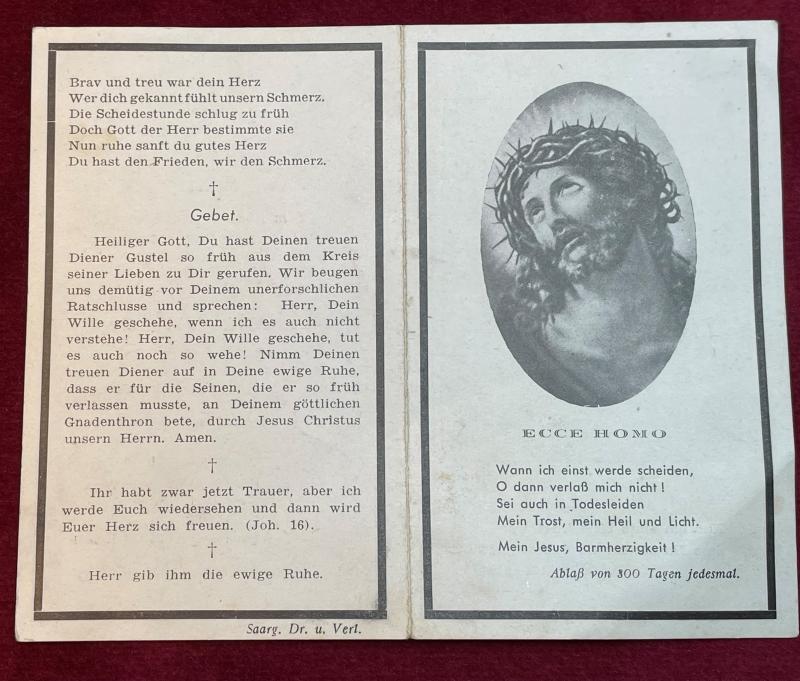 Brav und treu war dein Herz
Wer dich gekannt fühlt unsern Schmerz.
Die Scheidestunde schlug zu früh
Doch Gott der Herr bestimmte sie
Nun ruhe sanft du gutes Herz
Du hast den Frieden, wir den Schmerz.
†
Gebet.
Heiliger Gott, Du hast Deinen treuen
Diener Gustel so früh aus dem Kreis
seiner Lieben zu Dir gerufen. Wir beugen
uns demütig vor Deinem unerforschlichen
Ratschlusse und sprechen: Herr, Dein
Wille geschehe, wenn ich es auch nicht
verstehe! Herr, Dein Wille geschehe, tut
es auch noch so wehe! Nimm Deinen
treuen Diener auf in Deine ewige Ruhe,
dass er für die Seinen, die er so früh
verlassen musste, an Deinem göttlichen
Gnadenthron bete, durch Jesus Christus
unsern Herrn. Amen.
†
Ihr habt zwar jetzt Trauer, aber ich
werde Euch wiedersehen und dann wird
Euer Herz sich freuen. (Joh. 16).
†
Herr gib ihm die ewige Ruhe.
Saarg. Dr. u. Verl.
ECCE HOMO
Wann ich einst werde scheiden,
O dann verlaß mich nicht!
Sei auch in Todesleiden
Mein Trost, mein Heil und Licht.
Mein Jesus, Barmherzigkeit!
Ablaß von 300 Tagen jedesmal.